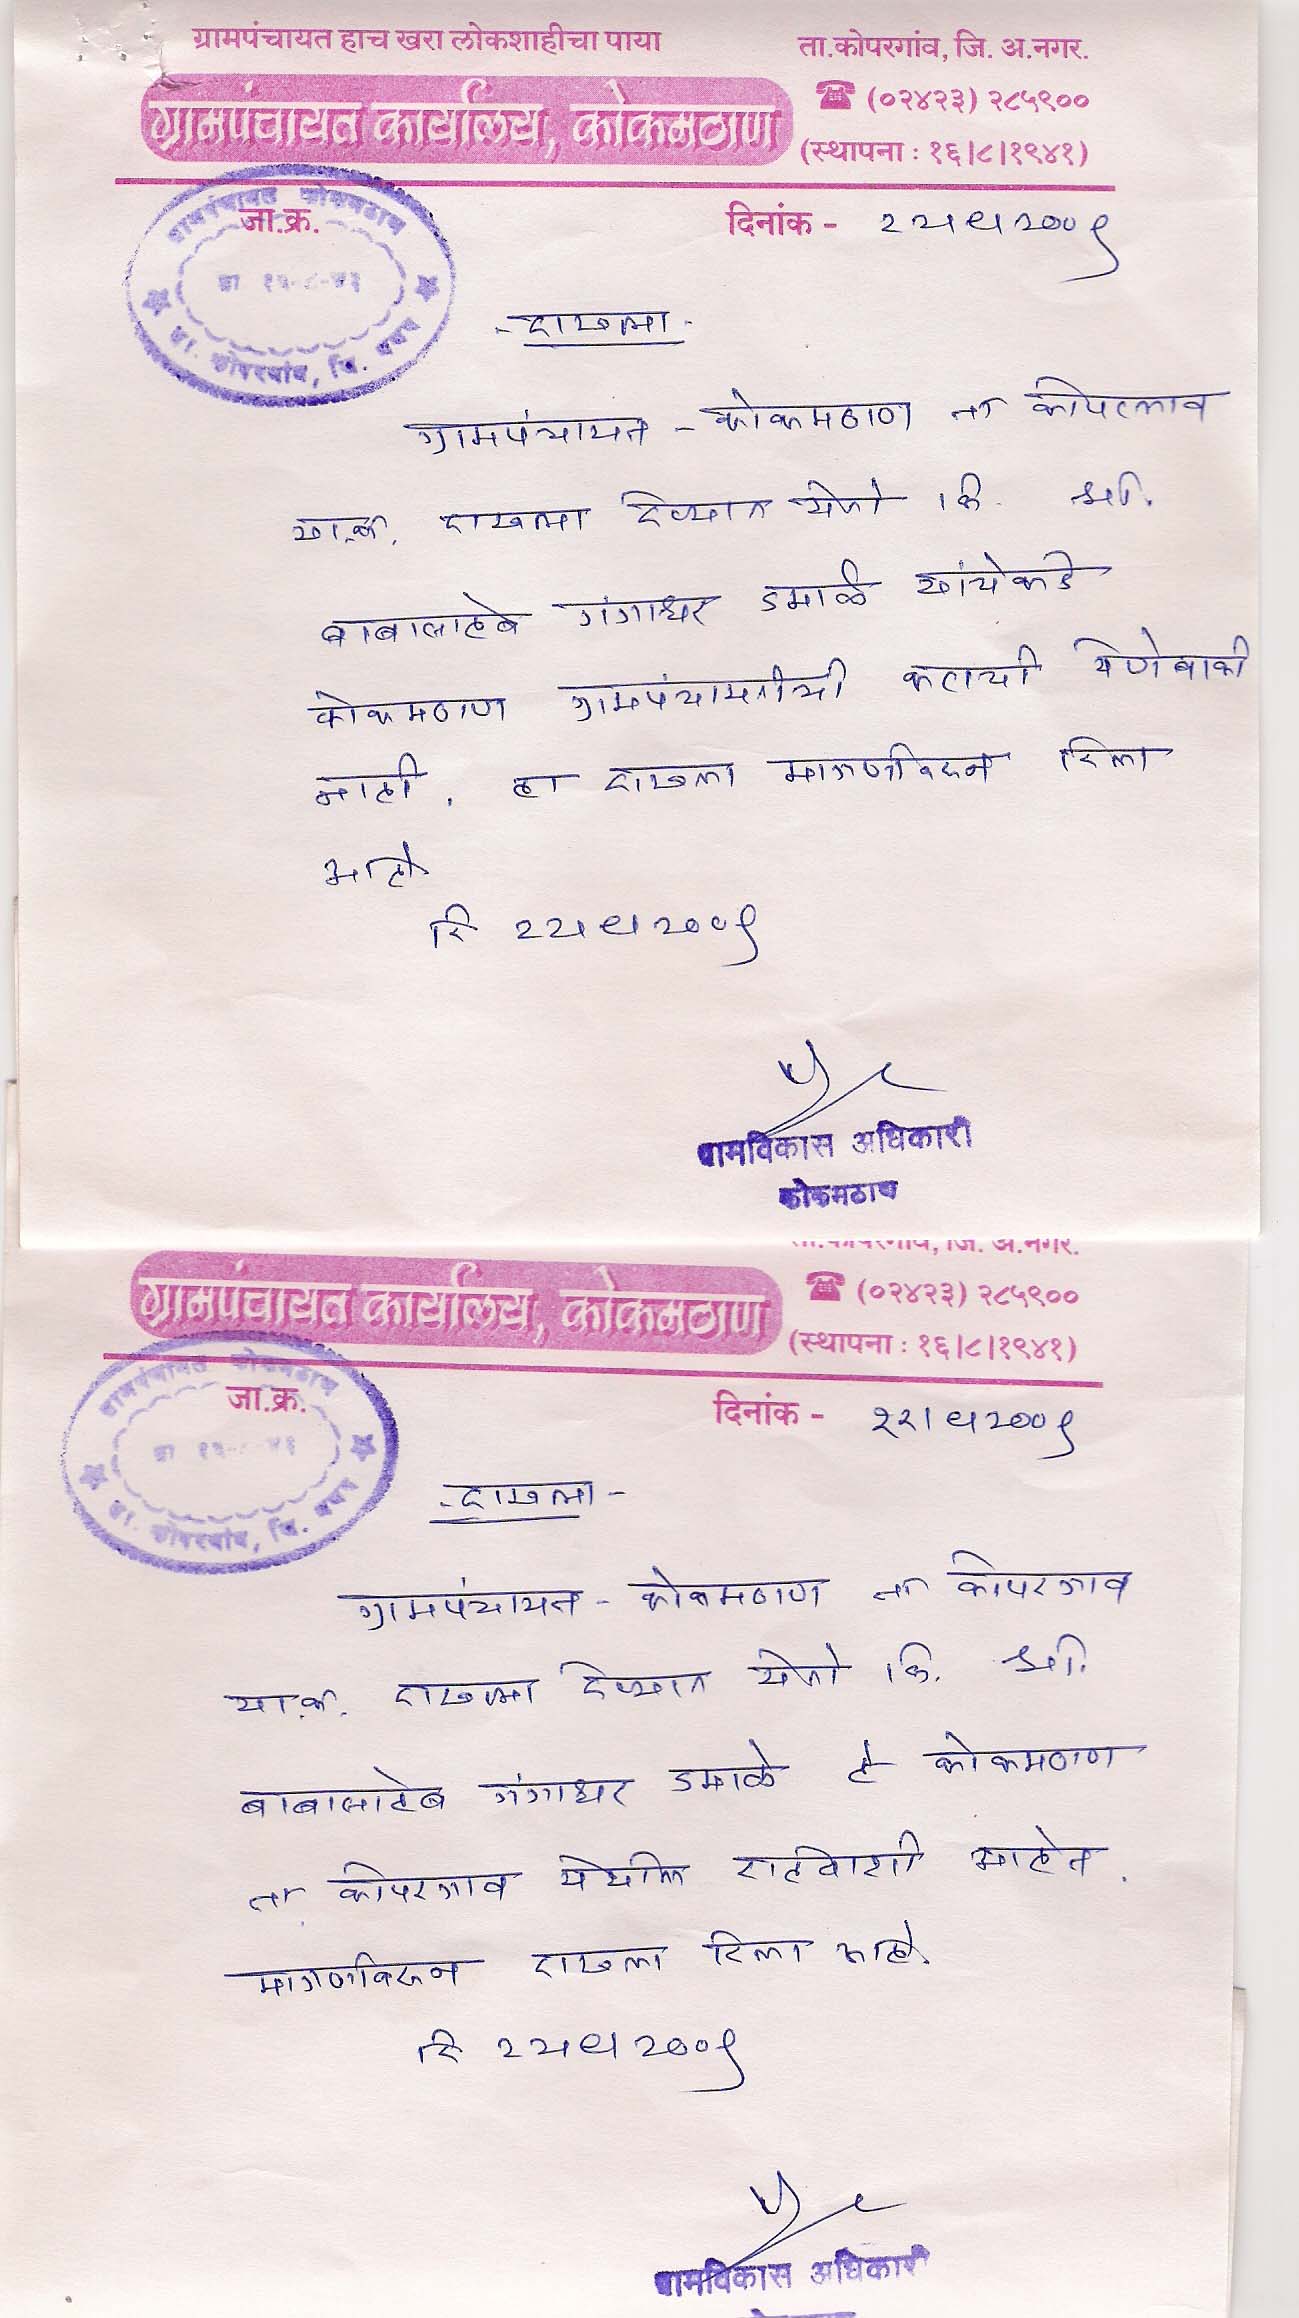 ग्रामपंचायत हाच खरा लोकशाहीचा पाया
ता.कोपरगांव, जि. अ.नगर.
ग्रामपंचायत कार्यालय, कोकमठाण
☎ (०२४२३) २८५९००
(स्थापना : १६|८|१९४१)
जा.क्र.
दिनांक -
ग्रामपंचायत कोकमठाण
ता. कोपरगांव, जि.
- दाखला -
ग्रामपंचायत - कोकमठाण ता कोपरगाव
या.क. दाखला देण्यात येतो कि. श्री.
बाबासाहेब गंगाधर डमाळे यांचेकडे
कोकमठाण ग्रामपंचायतीची कराची येणेबाकी
नाही. हा दाखला मागणीवरून दिला
आहे
दि
ग्रामविकास अधिकारी
कोकमठाण
ता.कोपरगांव, जि. अ.नगर.
ग्रामपंचायत कार्यालय, कोकमठाण
☎ (०२४२३) २८५९००
(स्थापना : १६|८|१९४१)
जा.क्र.
दिनांक -
ग्रामपंचायत कोकमठाण
ता. कोपरगांव, जि.
- दाखला -
ग्रामपंचायत - कोकमठाण ता कोपरगाव
या.क. दाखला देण्यात येतो कि. श्री.
बाबासाहेब गंगाधर डमाळे हे कोकमठाण
ता. कोपरगाव येथील रहिवाशी आहेत.
मागणीवरून दाखला दिला आहे.
दि
ग्रामविकास अधिकारी